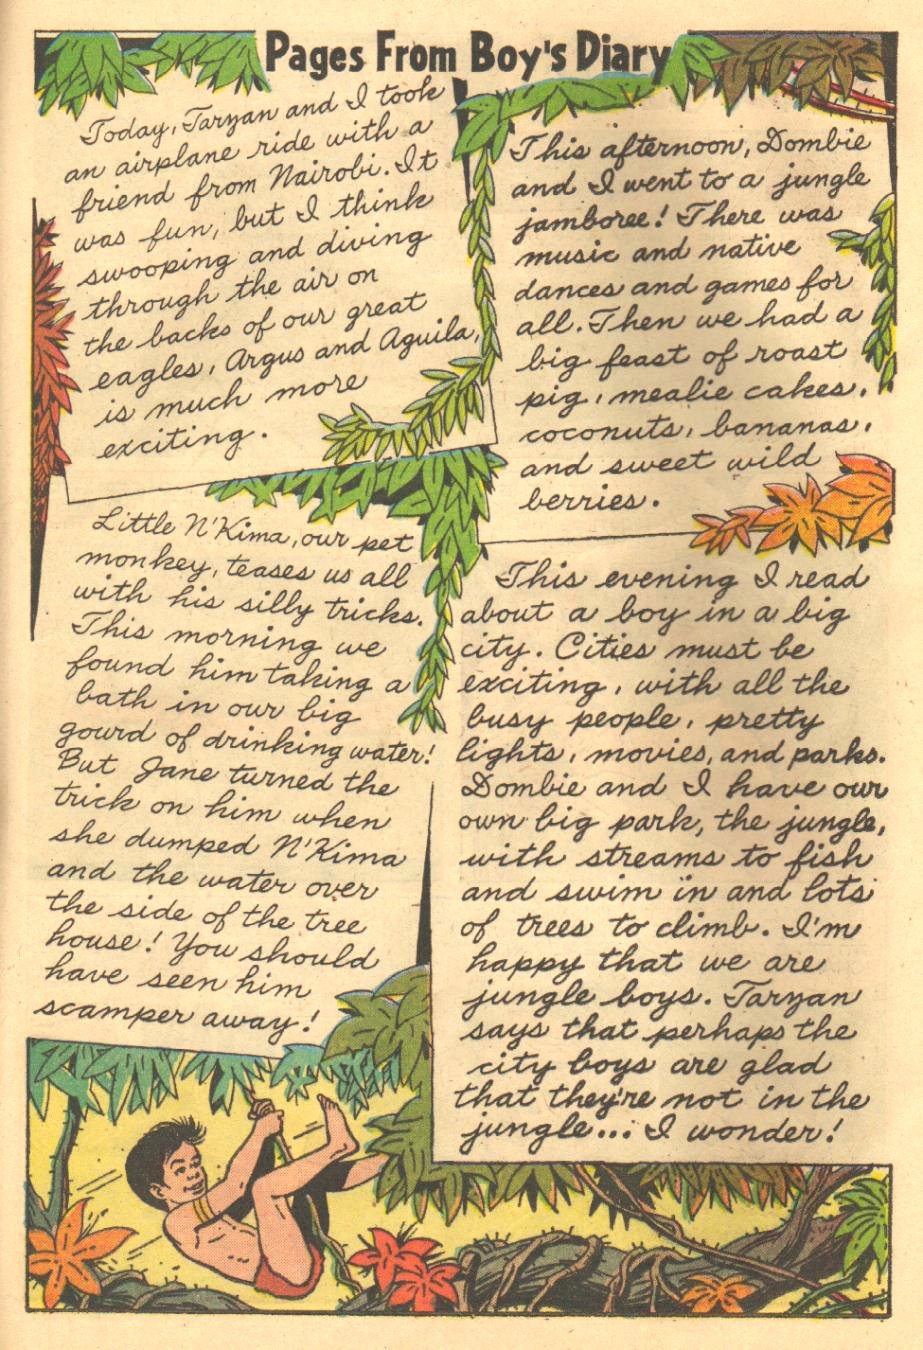 Pages From Boy's Diary
Today, Tarzan and I took
an airplane ride with a
friend from Nairobi. It
was fun, but I think
swooping and diving
through the air on
the backs of our great
eagles, Argus and Aguila,
is much more
exciting.
Little N'Kima, our pet
monkey, teases us all
with his silly tricks.
This morning we
found him taking a
bath in our big
gourd of drinking water!
But Jane turned the
trick on him when
she dumped N'Kima
and the water over
the side of the tree
house! You should
have seen him
scamper away!
This afternoon, Dombie
and I went to a jungle
jamboree! There was
music and native
dances and games for
all. Then we had a
big feast of roast
pig, mealie cakes,
coconuts, bananas,
and sweet wild
berries.
This evening I read
about a boy in a big
city. Cities must be
exciting, with all the
busy people, pretty
lights, movies, and parks.
Dombie and I have our
own big park, the jungle,
with streams to fish
and swim in and lots
of trees to climb. I'm
happy that we are
jungle boys. Tarzan
says that perhaps the
city boys are glad
that they're not in the
jungle... I wonder!